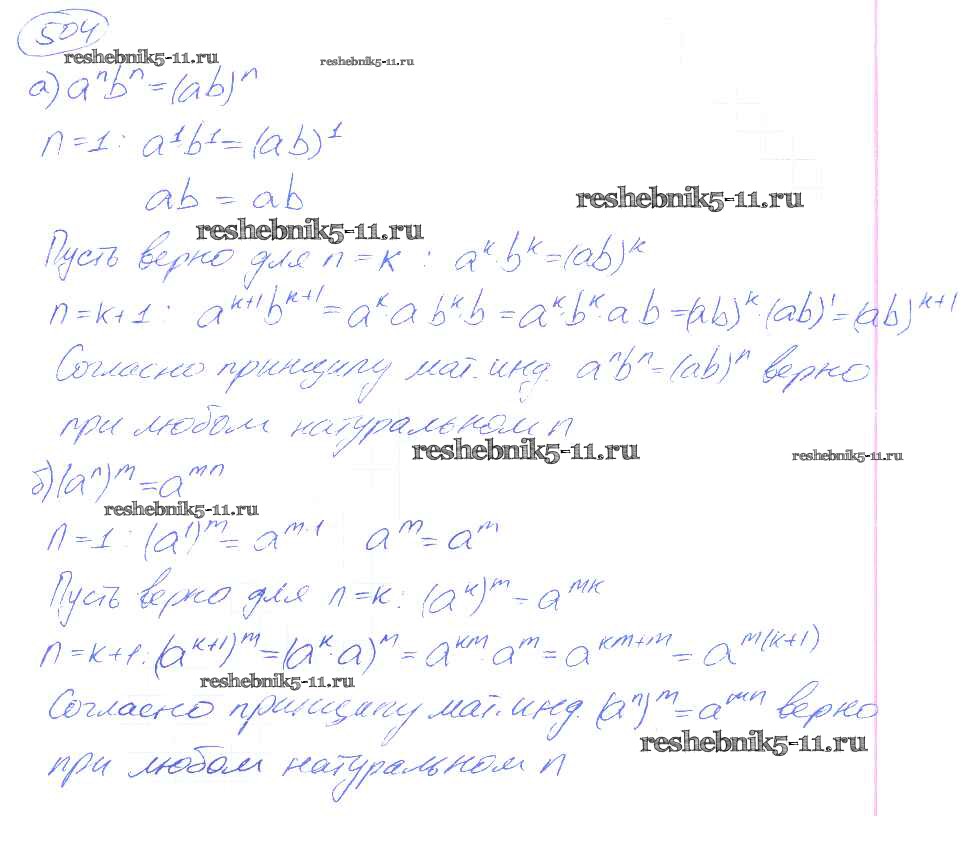 504
reshebnik5-11.ru reshebnik5-11.ru
а) aⁿbⁿ = (ab)ⁿ
n = 1 : a¹b¹ = (ab)¹
ab = ab
reshebnik5-11.ru
reshebnik5-11.ru
Пусть верно для n = k : aᵏ·bᵏ = (ab)ᵏ
n = k+1 : aᵏ⁺¹bᵏ⁺¹ = aᵏ·a bᵏ·b = aᵏ·bᵏ·a b = (ab)ᵏ·(ab)¹ = (ab)ᵏ⁺¹
Согласно принципу мат. инд. aⁿbⁿ = (ab)ⁿ верно
при любом натуральном n
reshebnik5-11.ru reshebnik5-11.ru
б) (aⁿ)ᵐ = aᵐⁿ
reshebnik5-11.ru
n = 1 : (a¹)ᵐ = aᵐ·¹ aᵐ = aᵐ
Пусть верно для n = k : (aᵏ)ᵐ = aᵐᵏ
n = k+1 : (aᵏ⁺¹)ᵐ = (aᵏ·a)ᵐ = aᵏᵐ·aᵐ = aᵏᵐ⁺ᵐ = aᵐ⁽ᵏ⁺¹⁾
reshebnik5-11.ru
Согласно принципу мат. инд. (aⁿ)ᵐ = aᵐⁿ верно
reshebnik5-11.ru
при любом натуральном n